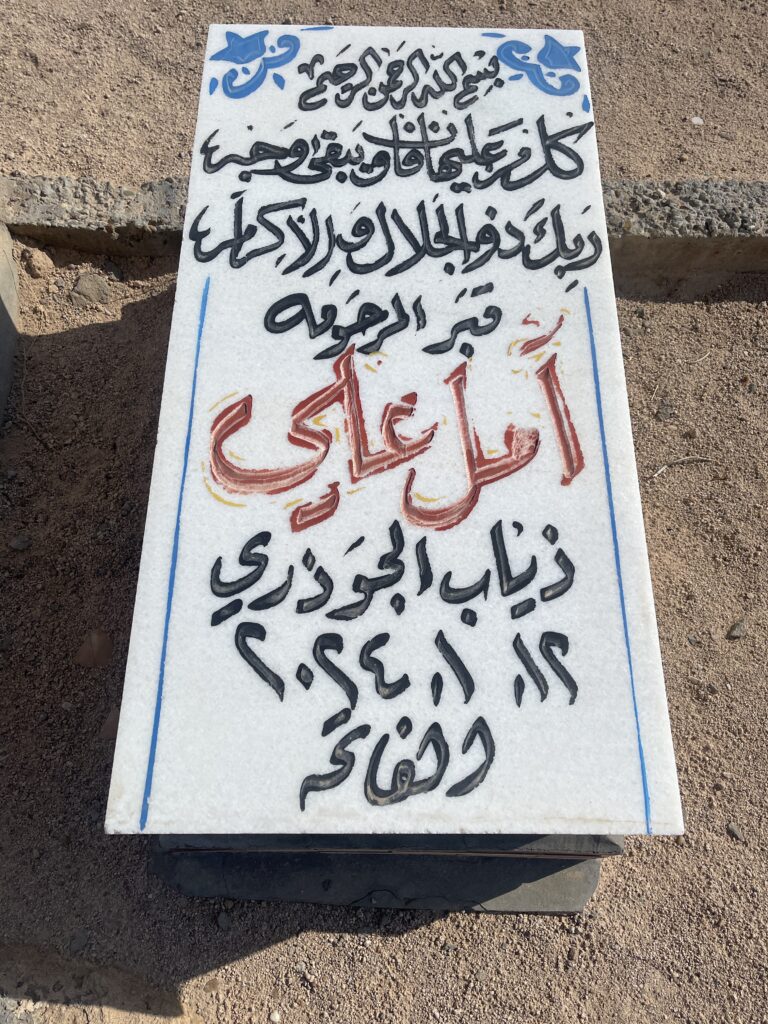 بسم الله الرحمن الرحيم
كل من عليها فان ويبقى وجه
ربك ذو الجلال والإكرام
قبر المرحومه
أمل علي
ذياب الجوذري
١٢. ١. ٢٠٢٤
الفاتحة